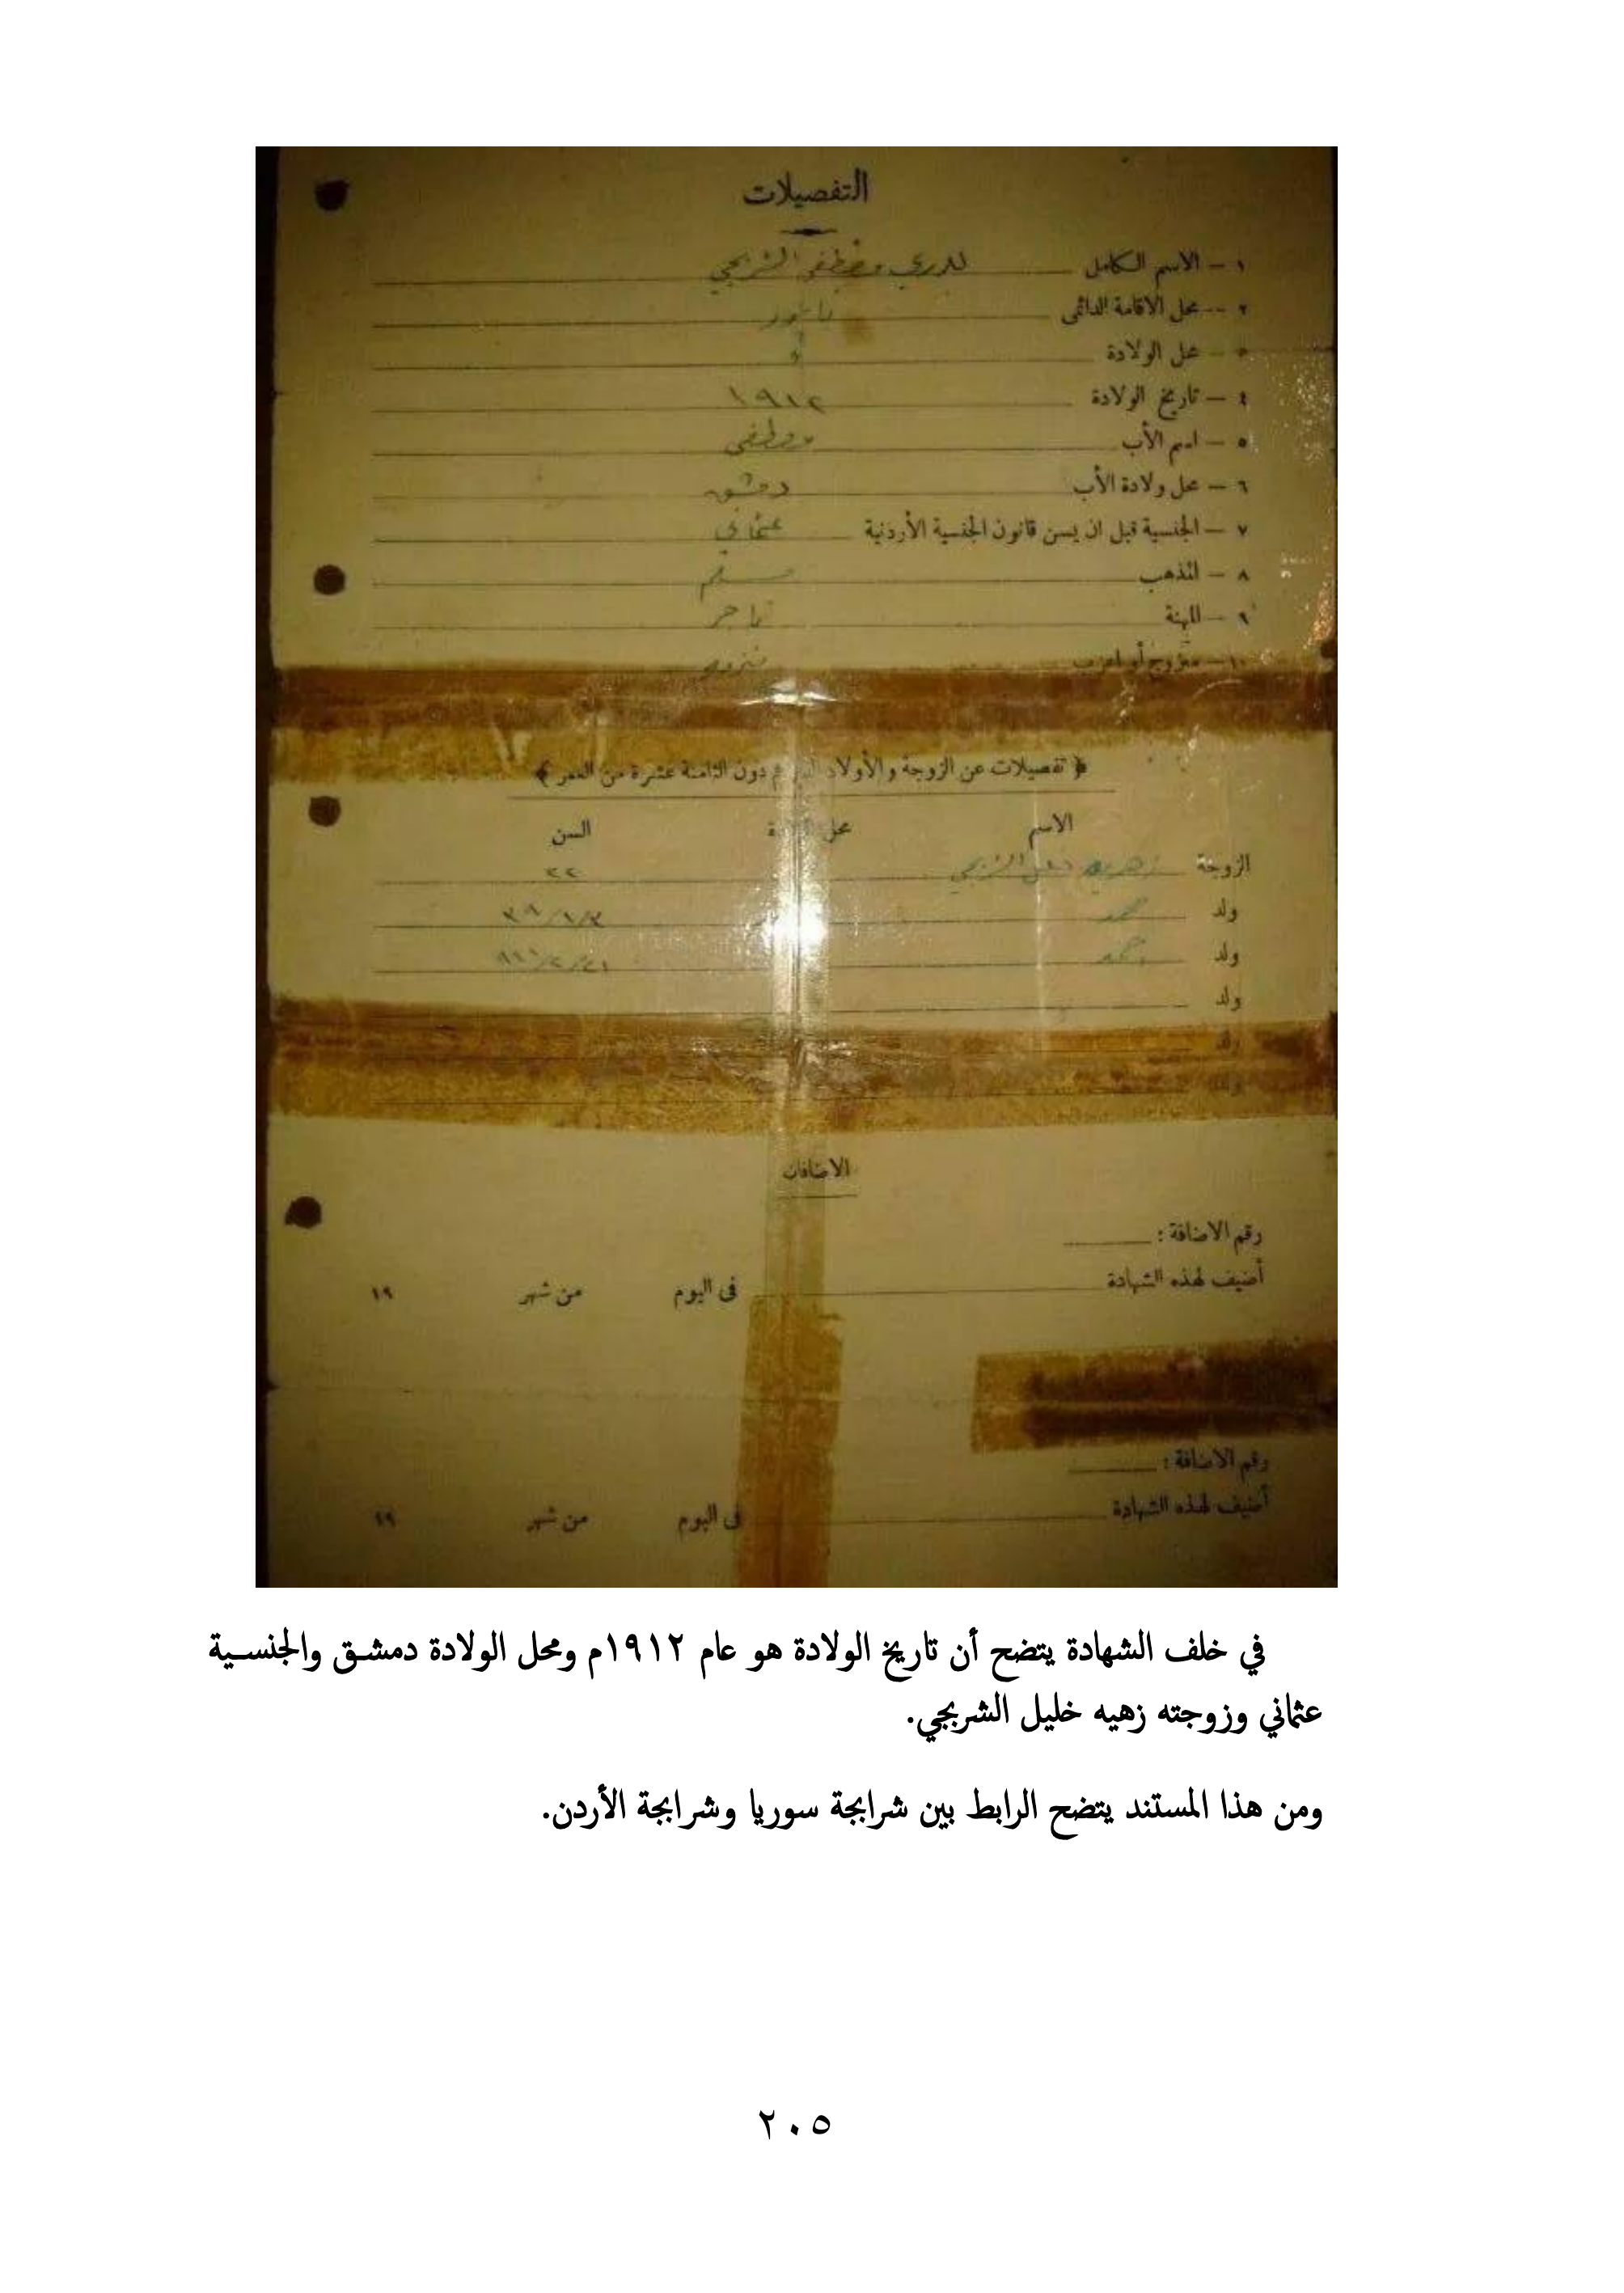 التفصيلات
١ – الاسم الكامل مصطفى الشربجي
٢ – محل الاقامة الدائمى
٣ – محل الولادة
٤ – تاريخ الولادة ١٩١٢
٥ – اسم الأب مصطفى
٦ – محل ولادة الأب دمشق
٧ – الجنسية قبل ان يسن قانون الجنسية الأردنية عثماني
٨ – المذهب مسلم
٩ – المهنة تاجر
١٠ – متزوج أو اعزب متزوج
﴿ تفصيلات عن الزوجة والأولاد دون الثامنة عشرة من العمر ﴾
الاسم محل السن
الزوجة الشربجي ٢٢
ولد محمد
ولد
ولد
ولد
ولد
الاضافات
رقم الاضافة :
أضيف لهذه الشهادة فى اليوم من شهر ١٩
رقم الاضافة :
أضيف لهذه الشهادة فى اليوم من شهر ١٩
في خلف الشهادة يتضح أن تاريخ الولادة هو عام ١٩١٢م ومحل الولادة دمشق والجنسية
عثماني وزوجته زهيه خليل الشربجي.
ومن هذا المستند يتضح الرابط بين شرابجة سوريا وشرابجة الأردن.
٢٠٥